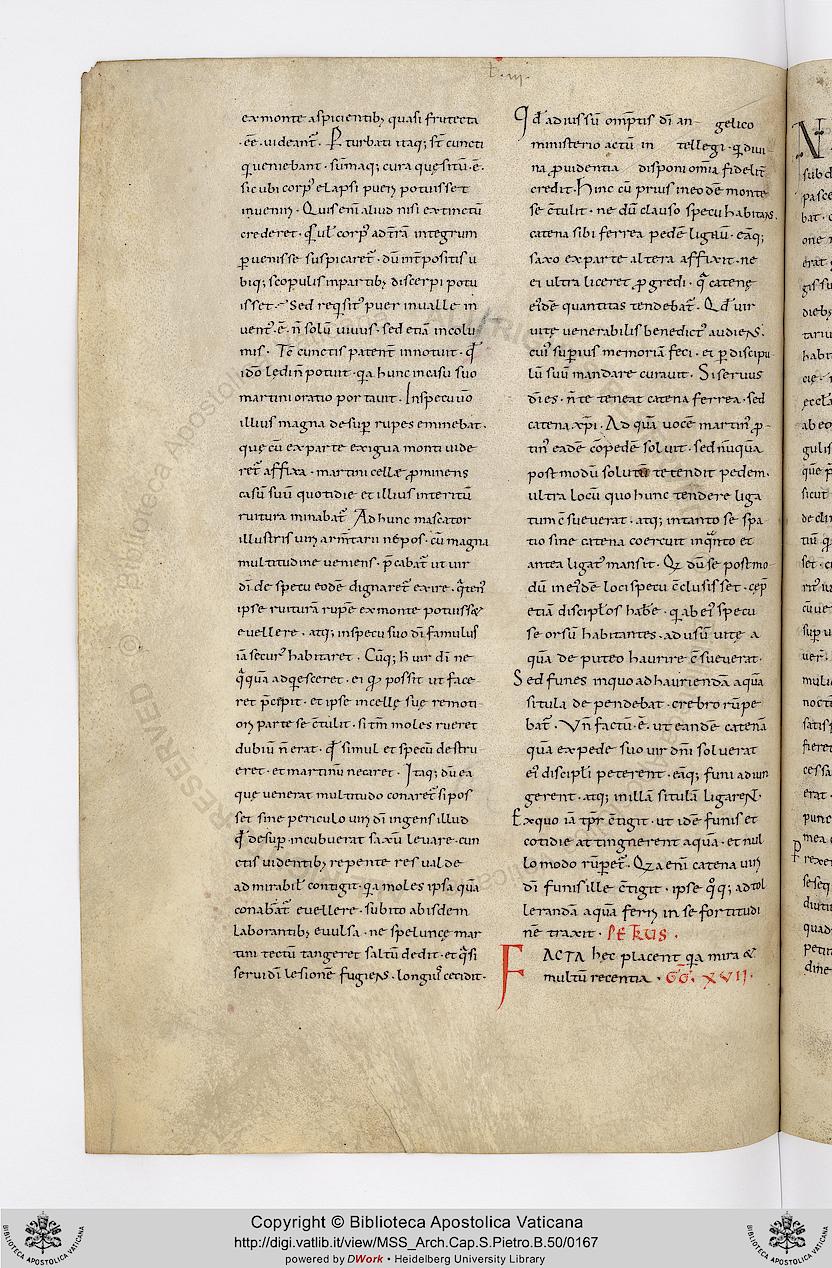 ex monte aspicientib; quasi frutecta
·ee· uideant̅· P̲turbati itaq; st̅ cuncti
qui ueniebant· sūmaq; cura quęsitū·ē·
sic ubi corp᾽ elapsi pueri potuisset
inueniri· Quis eni̅ aliud nisi extinctū
crederet· qͥs ul̓ corp᾽ ad t̅rā integrum
p̲uenisse suspicaret̅· dū int̅positis u
biq; scopulis in partib; discerpi potu
isset· Sed reqͥsit᾽ puer in ualle in
uent᾽·ē· n̅ solū uiuus· sed etiā incolu
mis· Tc̅ cunctis patent̅ innotuit· qd̅
ido̅ lędi n̅ potuit· qa hunc in casu suo
martini oratio portauit· In specu u̅o
illius magna desup̲ rupes eminebat·
quę cū ex parte exigua monti uide
ret̅ affixa· martini cellę prominens
casū suū quotidie et illius interitū
ruitura minabat̅· Ad hunc mascator
illustris uiri arm̅tarii nepos· cū magna
multitudine ueniens· p̅cabat̅ ut uir
dī de specu eodē dignaret̅ exire· qͣten᾽
ipse ruiturā rupē ex monte potuisset
euellere· atq; in specu suo dī famulus
iā secur᾽ habitaret· Cūq; h̅ uir dī ne
qͣquā adqͥesceret· ei qͦ possit ut face
ret p̅cepit· et ipse in cellę suę remoti
ori parte se c̅tulit· si tm̅ moles rueret
dubiū n̅ erat· qd̅ simul et specū destru
eret· et martinū necaret· Itaq; dū ea
que uenerat multitudo conaret̅ si pos
set sine periculo uiri dī ingens illud
qd̅ desup̲ incubuerat saxū leuare· cun
ctis uidentib; repente res ualde
admirabil̓ contigit· qa moles ipsa quā
conabat̅ euellere· subito ab isdem
laborantib; euulsa· ne spelunce mar
tini tectū tangeret saltū dedit· et qͣsi
serui dī lesionē fugiens· longiu᾽ cecidit·
Qd̅ ad iussū omp̅tis dī angelico
ministerio actū intellegi· qͥ diui
na p̲uidentia disponi omia fidelit̅
credit· Hinc cū prius in eodē monte
se c̅tulit· ne dū clauso specu habitans·
catena sibi ferrea pedē ligauit· eāq;
saxo ex parte altera affixit· ne
ei ultra liceret progredi· qͣ catenę
ei᾽dē quantitas tendebat̅· Qd̅ uir
uitę uenerabilis benedict᾽ audiens·
cui᾽ superius memoriā feci· et p̲ discipu
lū suū mandare curauit· Si seruus
dī es· n̅ te teneat catena ferrea· sed
catena xp̅i· Ad quā uocē martin᾽ pro
tin᾽ eadē co̅pedē soluit· sed nūquā
postmodū solutū tetendit pedem·
ultra locū quo hunc tendere liga
tum c̅sueuerat· atq; in tanto se spa
tio sine catena coercuit inqͣnto et
antea ligat᾽ mansit· Qͥ dū se postmo
dū in ei᾽dē loci specu c̅clusisset· cep̅
etiā discipl̓os habe̅· qͥ ab ei᾽ specu
seorsū habitantes· ad usū uitę a
quā de puteo haurire c̅sueuerat·
Sed funes in quo ad hauriendā aquā
situla dependebat· crebro rūpe
bat̅· Vn̅ factū·ē· ut eandē catenā
quā ex pede suo uir dni̅ soluerat
ei᾽ discipl̓i peterent· eāq; funi adiun
gerent· atq; in illā situlā ligarent·
Ex quo iā tp̅r c̅tigit· ut idē funis et
cotidie at tingneretur aquā· et nul
lo modo rūperet̅· Qa eni̅ catena uiri
dī funis ille c̅tigit· ipse qͦq; ad tol
lerandā aquā ferri in se fortitudi
nē traxit· PETRUS·
FACTA hęc placent qa mira &
multū recentia· GG̅· XVII·
Copyright © Biblioteca Apostolica Vaticana
http://digi.vatlib.it/view/MSS_Arch.Cap.S.Pietro.B.50/0167
powered by DWork • Heidelberg University Library
BIBLIOTECA APOSTOLICA VATICANA
BIBLIOTECA APOSTOLICA VATICANA